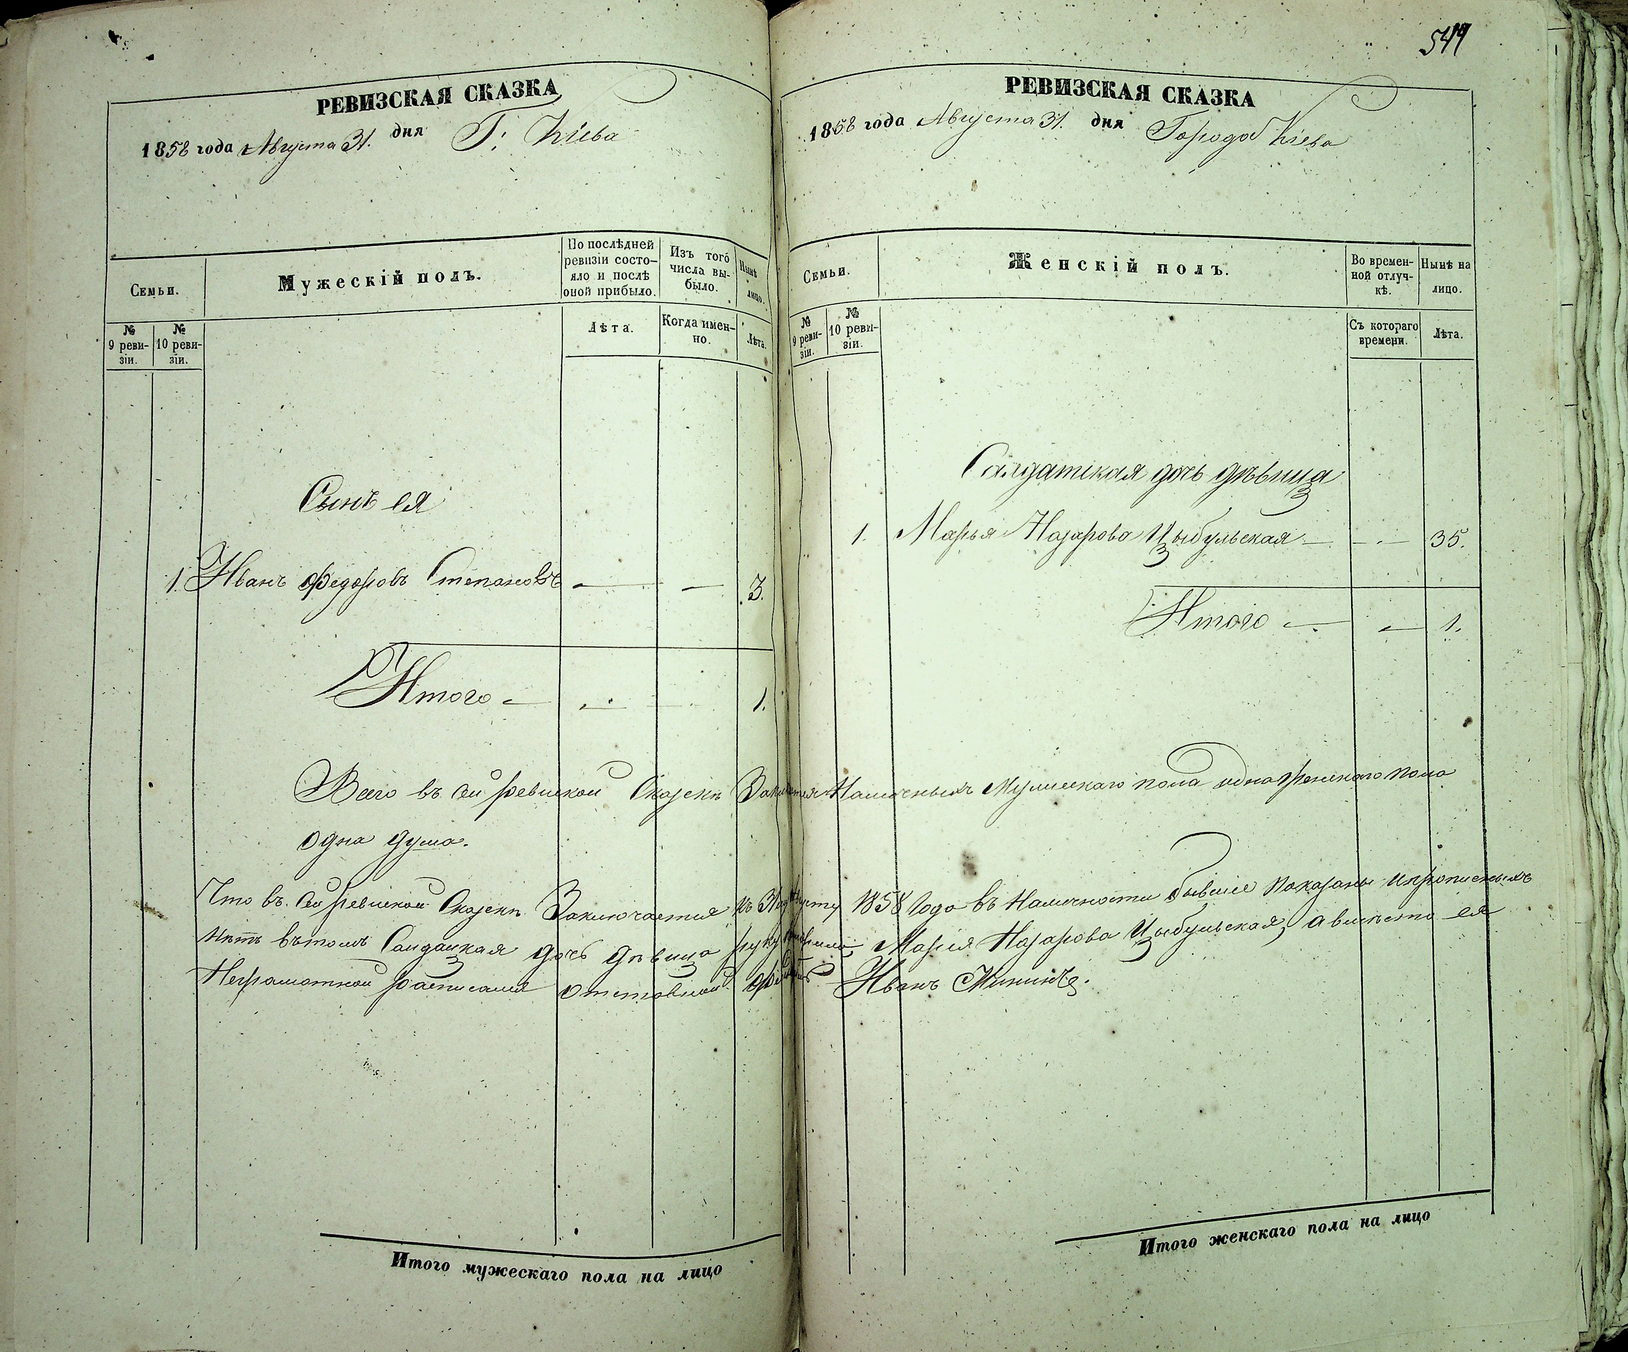 544
РЕВИЗСКАЯ СКАЗКА
1858 года Августа 31. дня Г: Кіева
Семьи.
Мужескій полъ.
По послѣдней ревизіи состояло и послѣ оной прибыло.
Изъ того числа выбыло.
Нынѣ лицо.
№ 9 ревизіи.
№ 10 ревизіи.
Лѣта.
Когда именно.
Лѣта.
Сынъ ея
1. Иванъ Федоровъ Степановъ — — 3.
Итого — — 1.
РЕВИЗСКАЯ СКАЗКА
1858 года Августа 31. дня Города Кіева
Семьи.
Женскій полъ.
Во временной отлучкѣ.
Нынѣ на лицо.
№ 9 ревизіи.
№ 10 ревизіи.
Съ котораго времени.
Лѣта.
Салдатская дочь дѣвица
1. Марья Назарова Цыбульская — — 35.
Итого — — 1.
Всего въ сей ревиской Скаски Наличныхъ Мужескаго пола одна женскаго пола
одна душа.
Что въ сей ревиской Скаски Заключается къ 31 Августу 1858 Года въ Наличности бывшіе показаны ипрописныхъ
нѣтъ вътомъ Салдацкая дочь дѣвица Марія Назарова Цыбульская, авместо ея
Неграмотной расписался отставной Иванъ
Итого мужескаго пола на лицо
Итого женскаго пола на лицо